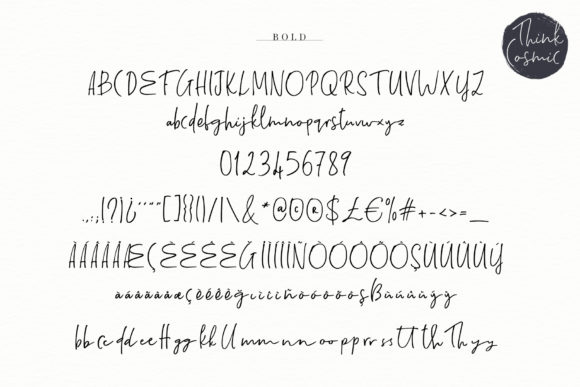 BOLD
Think
Cosmic
ABCDEFGHIJKLMNOPQRSTUVWXYZ
abcdefghijklmnopqrstuvwxyz
0123456789
.,:;!?¡¿''""[]{}()/|\&*@©®$£€%#+-<>=_
ÀÁÂÃÄÅÆÇÈÉÊËĞÌÍÎÏİÑÒÓÔÕÖŞÙÚÛÜŰÝ
àáâãäåæçèéêëğıìíîïñòóôõöşßùúûüýÿ
bb cc dd ee H gg kk ll mm nn oo pp rr ss tt th Th yy